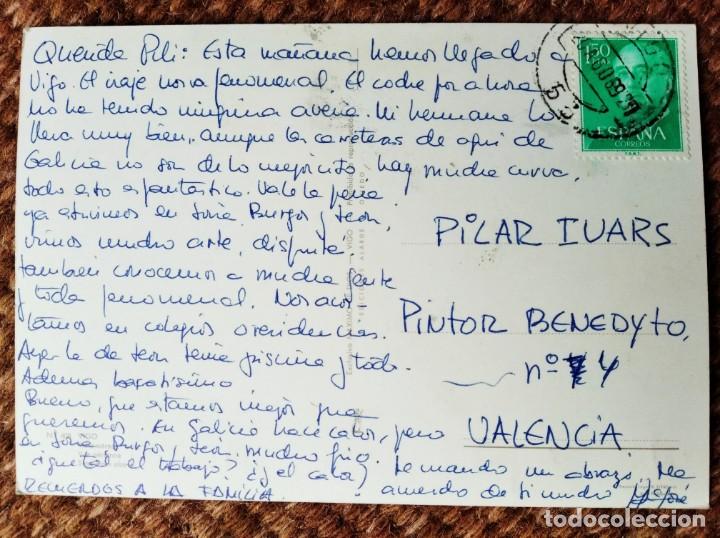 Querida Pili: Esta mañana hemos llegado a
Vigo. El viaje nos va fenomenal. El coche por ahora
no ha tenido ninguna averia. Mi hermano lo
lleva muy bien, aunque las carreteras de aqui de
Galicia no son de lo mejorcito, hay mucha curva,
todo esto es fantastico. Vale la pena
ya estuvimos en Soria, Burgos y León,
vimos mucho arte, disfruté.
tambien conocemos a mucha gente
y toda fenomenal. Nos aco
tamos en colegios o residencias.
Ayer la de León tenia piscina y todo.
Ademas baratisimo
Bueno, que estamos mejor que
queremos. En Galicia hace calor, pero
en Soria, Burgos y León, mucho frio.
¿que tal el trabajo? ¿y el calor? Te mando un abrazo. Me
acuerdo de ti mucho
RECUERDOS A LA FAMILIA.
PILAR IVARS
PINTOR BENEDYTO,
nº 4
VALENCIA
1'50
PTAS
ESPAÑA
CORREOS
VIGO
todocoleccion.net